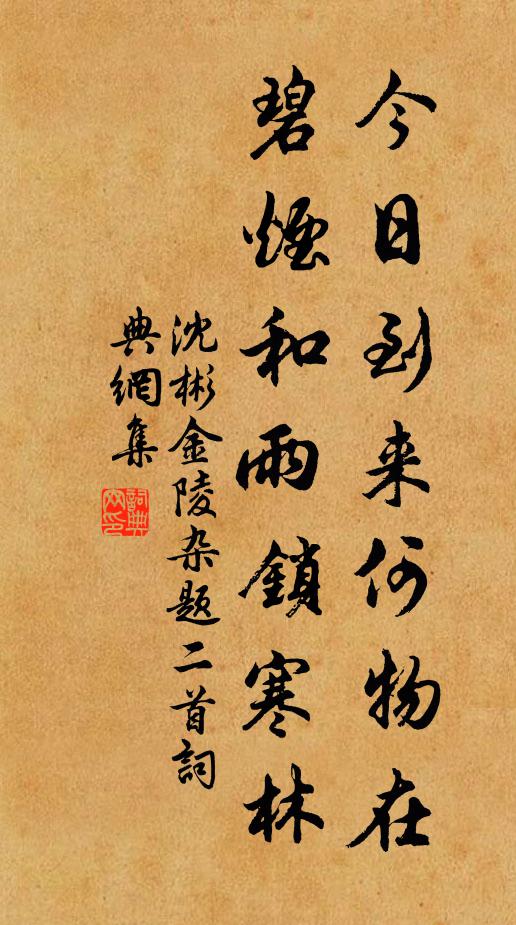 今日到来何物在
碧煙和雨鎖寒林
沈彬金陵杂题二首詞
典網集
詞典网印